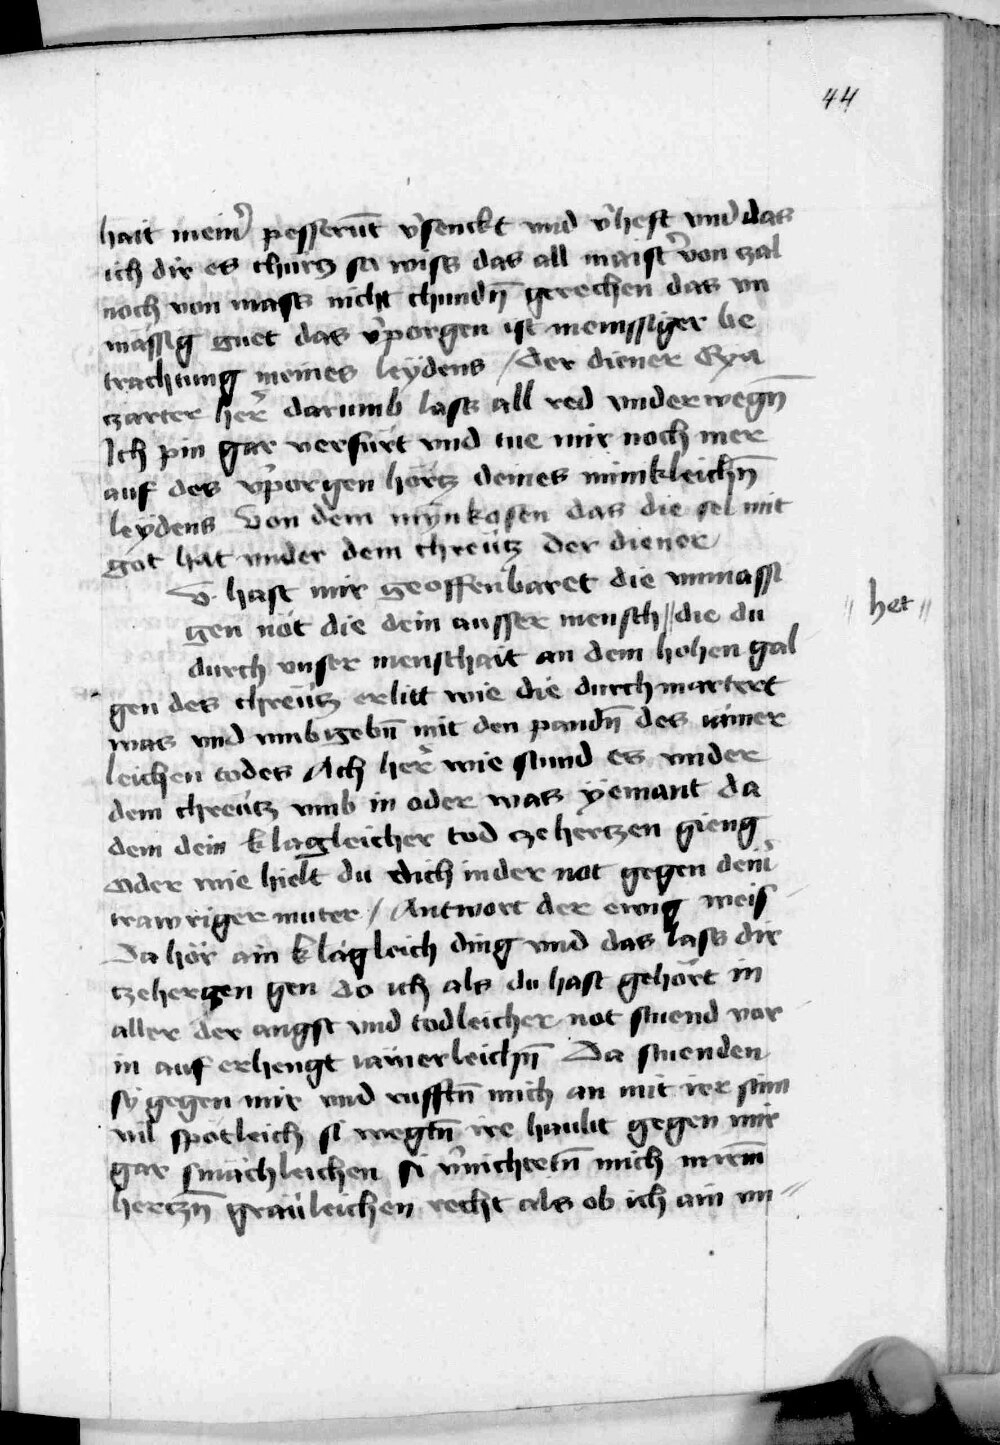 44
hait mein̄ pesserūt v̄senckt vnd v̄hest vnd das
ich dir es churtz so wiss das all maist̄ von zal
noch von mass nicht chundn̄ gerechen das vn
mässig guet das v̄porgen ist in emssiger be
trachtung meines leydens / Der diener Eya
tzarter her̄ darumb lass all red vnderwegn̄
Ich pin gar verfürt vnd tue mir noch mer
auf des v̄porgen hortz deines minikleichn̄
leydens Von dem mynkosen das die sel mit
got hat vnder dem chreütz Der diener
V hast mir geoffenbaret die vnmassi
gen nöt die dein ausser mensch // die du
" het "
durch vnser menschait an dem hohen gal
gen des chreütz erlitt wie die durchmartert
was vnd vmbgebn̄ mit den pandn̄ des iamer
leichen todes Ach her̄ wie stund es vnder
dem chreütz vmb in oder was yemant da
dem dein klagleicher tod ze hertzen gieng
Oder wie hielt du dich in der not gegen dein̄
trawriger muter / Antwort der ewig weis
Da hör ain klagleich ding vnd das lass dir
tze herzen gen do ich als du hast gehört in
aller der angst vnd todleicher not stuend vor
in auf erhengt iamerleichn̄ Da stuenden
sy gegen mir vnd rufftn̄ mich an mit irer stim
vil spotleich si wegtn̄ ire haubt gegen mir
gar smächleichen si v̄nichtetn̄ mich in irem̄
hertzn̄ gräuleichen recht als ob ich ain vn